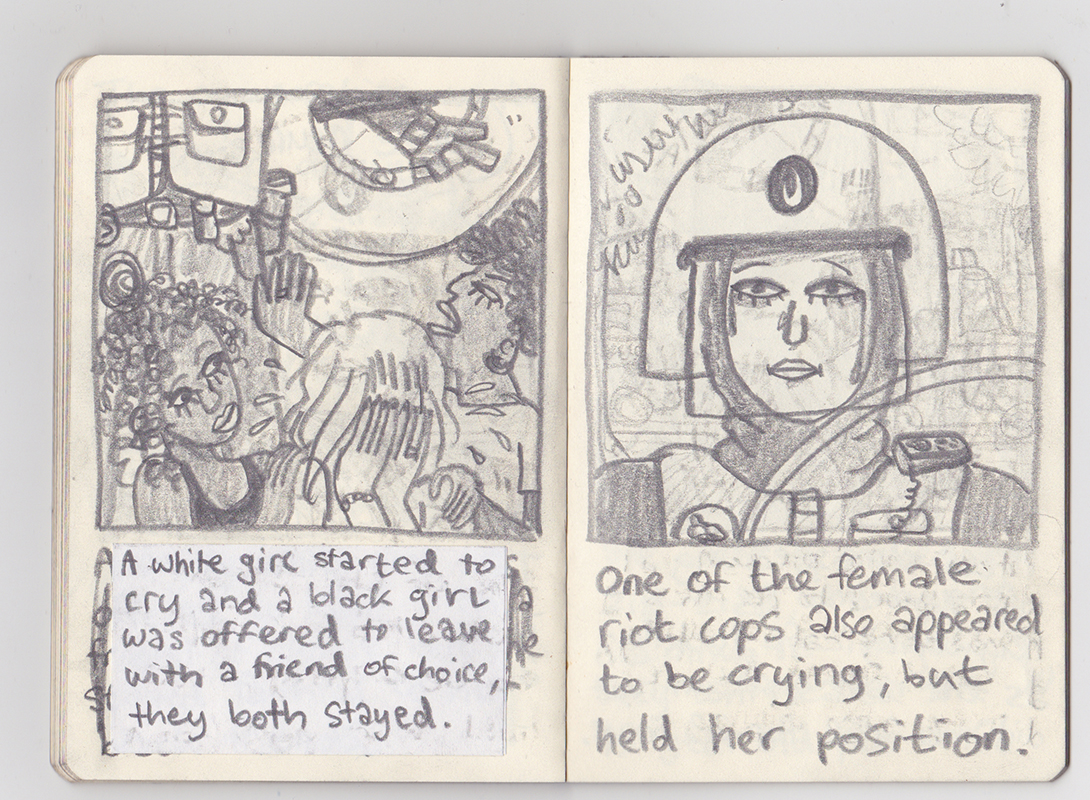 A white girl started to
cry and a black girl
was offered to leave
with a friend of choice,
they both stayed.
One of the female
riot cops also appeared
to be crying, but
held her position.